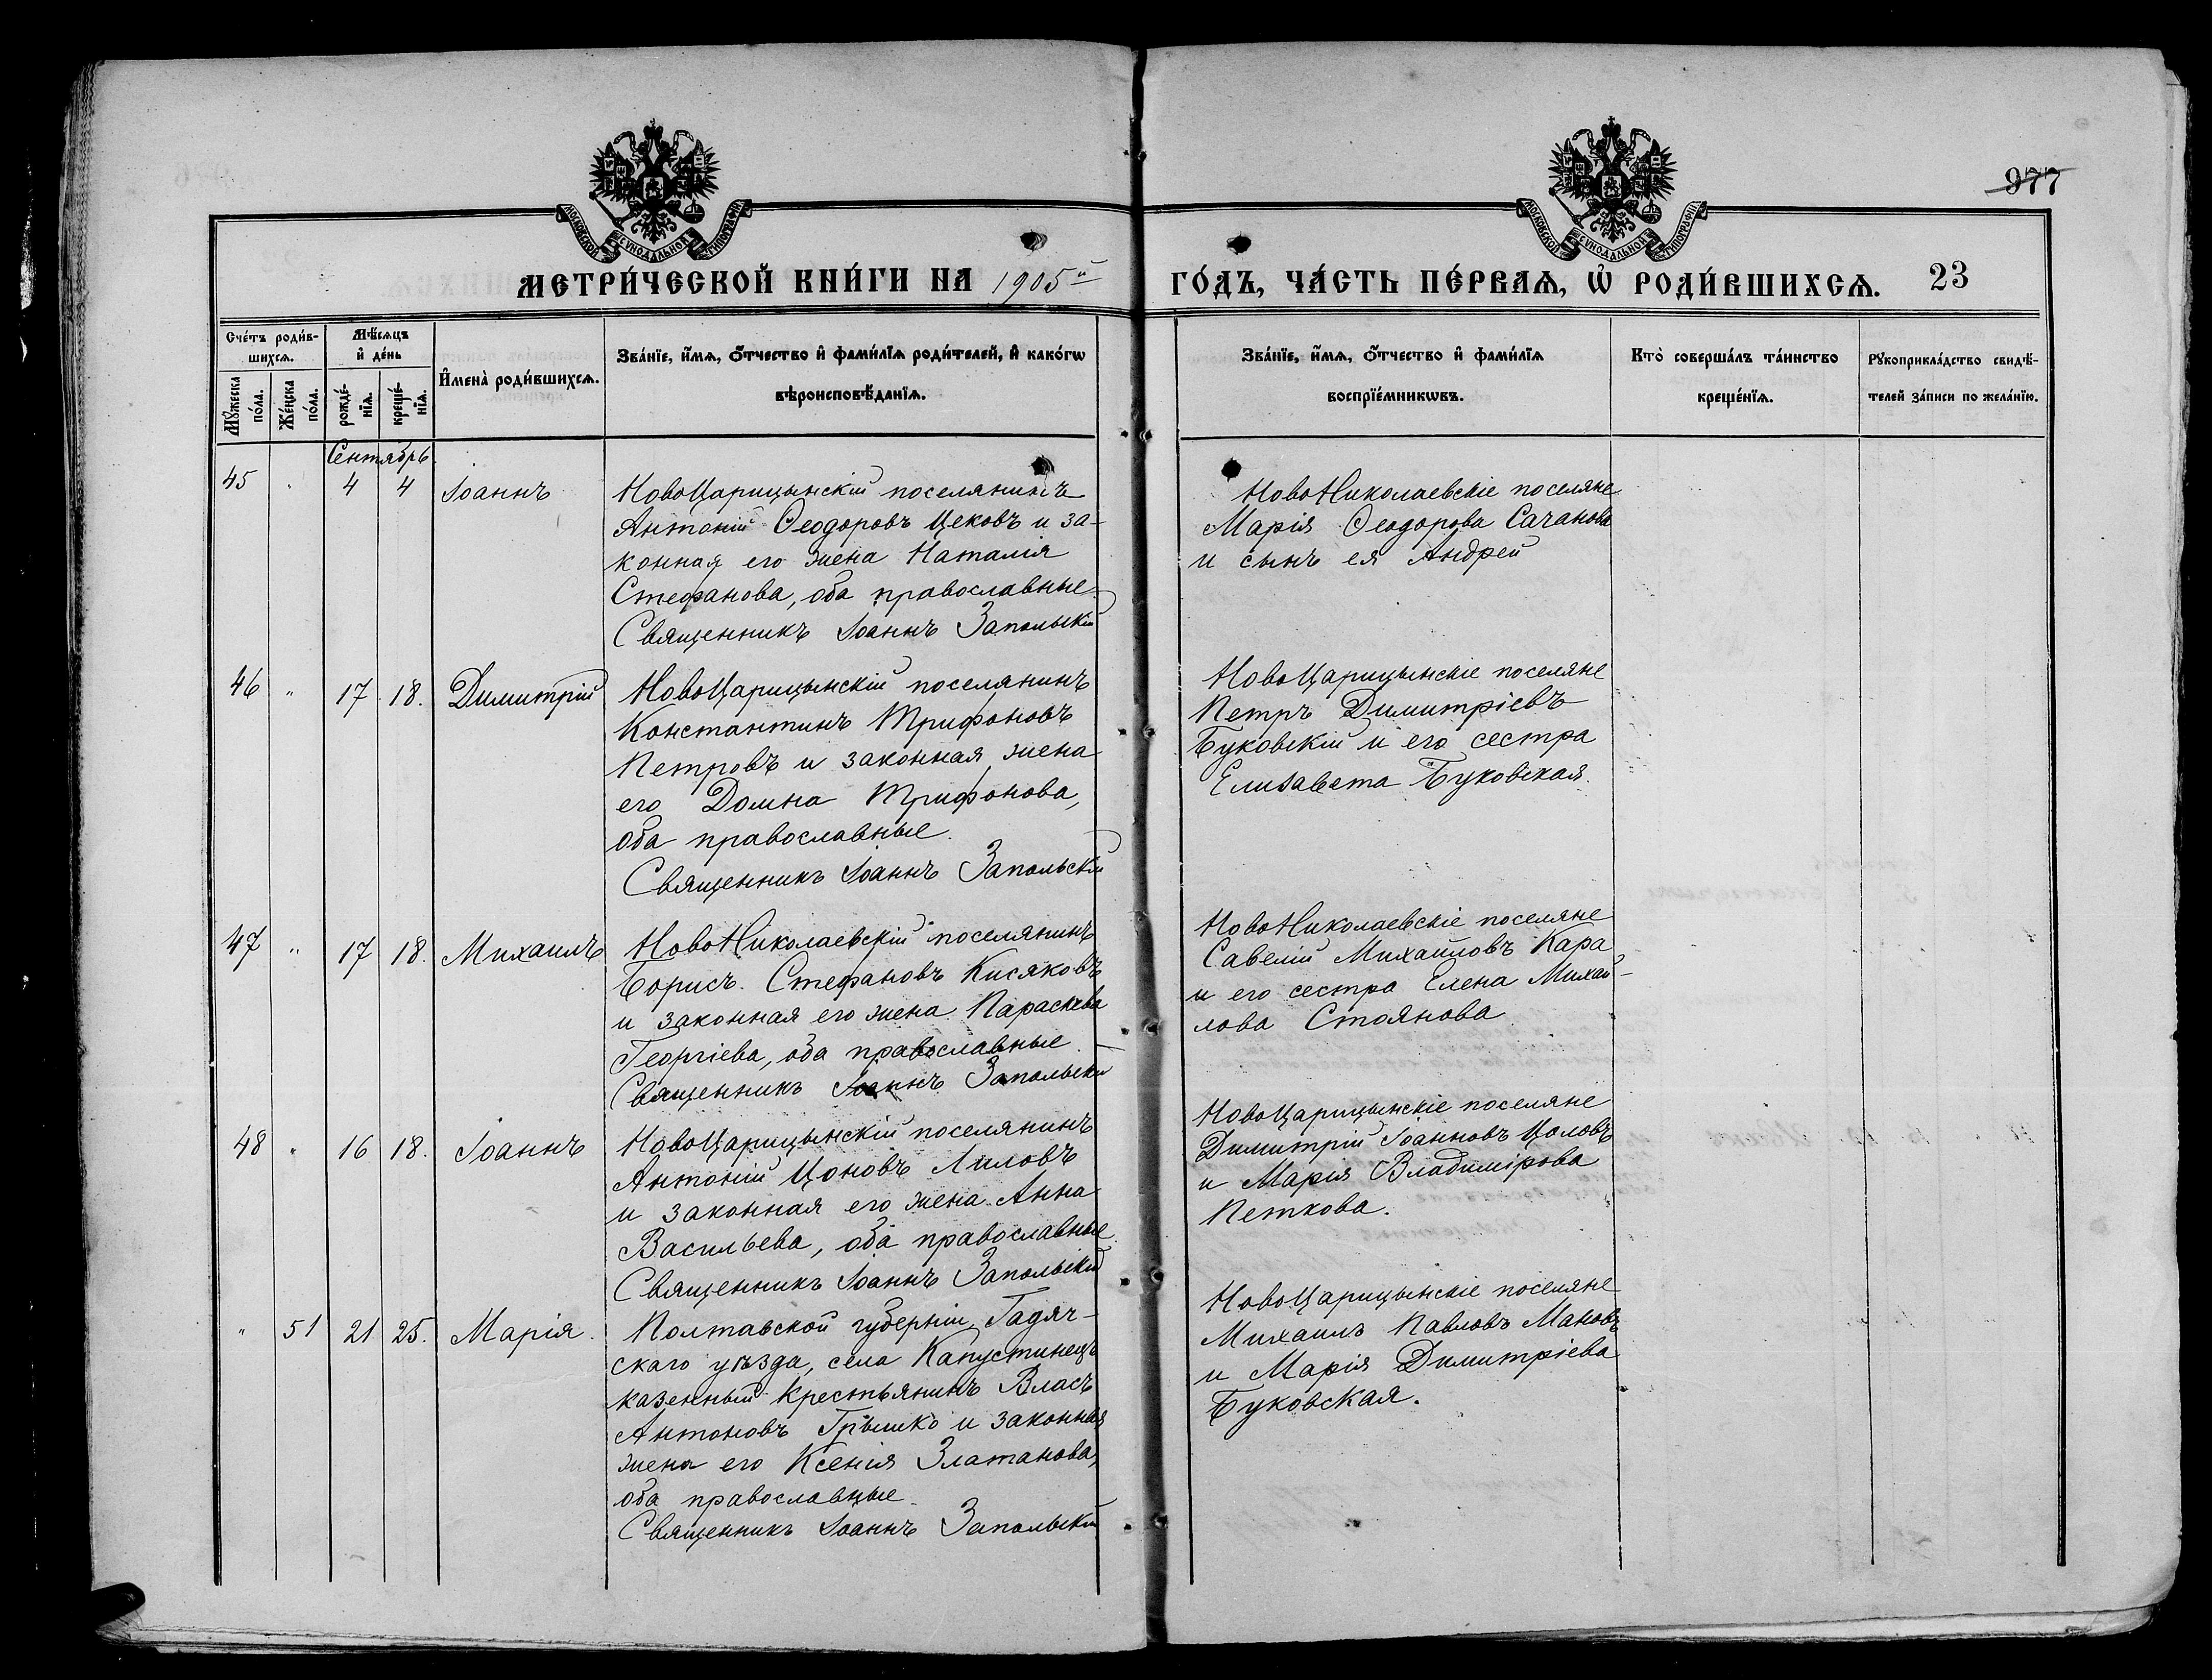 977
МОСКОВСКОЙ СѴНОДАЛЬНОЙ ТИПОГРАФІИ
МОСКОВСКОЙ СѴНОДАЛЬНОЙ ТИПОГРАФІИ
МЕТРИ́ЧЕСКОЙ КНИ́ГИ НА 1905й ГО́ДЪ, ЧА́СТЬ ПЕ́РВАѦ, Ѡ҆ РОДИ́ВШИХСѦ. 23
Сче́тъ роди́в-
шихсѧ.
Мѣ́сѧцъ
и҆ де́нь
Мꙋ́жеска
по́ла.
Же́нска
по́ла.
рожде́-
нїѧ.
креще́-
нїѧ.
И҆мена̀ роди́вшихсѧ.
Зва́нїе, и҆́мѧ, ѻ҆́тчество и҆ фами́лїѧ роди́телей, и҆ како́гѡ
вѣроисповѣ́данїѧ.
Зва́нїе, и҆́мѧ, ѻ҆́тчество и҆ фами́лїѧ
воспрїе́мникѡвъ.
Кто̀ соверша́лъ та́инство
креще́нїѧ.
Рꙋкоприкла́дство свидѣ́-
телей за́писи по жела́нїю.
Сентябрь.
45 " 4 4 Іоаннъ
НовоЦарицынскій поселянинъ
Антоній Ѳеодоровъ Цековъ и за-
конная его жена Наталія
Стефанова, оба православные
Священникъ Іоаннъ Запольскій
НовоНиколаевскіе поселяне
Марія Ѳеодорова Сачанова
и сынъ ея Андрей
46 " 17 18. Димитрій
НовоЦарицынскій поселянинъ
Константинъ Трифоновъ
Петровъ и законная жена
его Домна Трифонова,
оба православные.
Священникъ Іоаннъ Запольскій
НовоЦарицынскіе поселяне
Петръ Димитріевъ
Буковскій и его сестра
Елизавета Буковская.
47 " 17 18. Михаилъ
НовоНиколаевскій поселянинъ
Борисъ Стефановъ Кисяковъ
и законная его жена Параскева
Георгіева, оба православные.
Священникъ Іоаннъ Запольскій
НовоНиколаевскіе поселяне
Савелій Михайловъ Кара
и его сестра Елена Михай-
лова Стоянова
48 " 16 18. Іоаннъ
НовоЦарицынскій поселянинъ
Антоній Цоновъ Лиловъ
и законная его жена Анна
Васильева, оба православные
Священникъ Іоаннъ Запольскій
НовоЦарицынскіе поселяне
Димитрій Іоанновъ Цоловъ
и Марія Владимірова
Петкова.
" 51 21 25. Марія.
Полтавской губерніи, Гадяч-
скаго уѣзда, села Капустинецъ
казенный крестьянинъ Власъ
Антоновъ Грышко и законная
жена его Ксенія Златанова,
оба православные.
Священникъ Іоаннъ Запольскій
НовоЦарицынскіе поселяне
Михаилъ Павловъ Мановъ
и Марія Димитріева
Буковская.